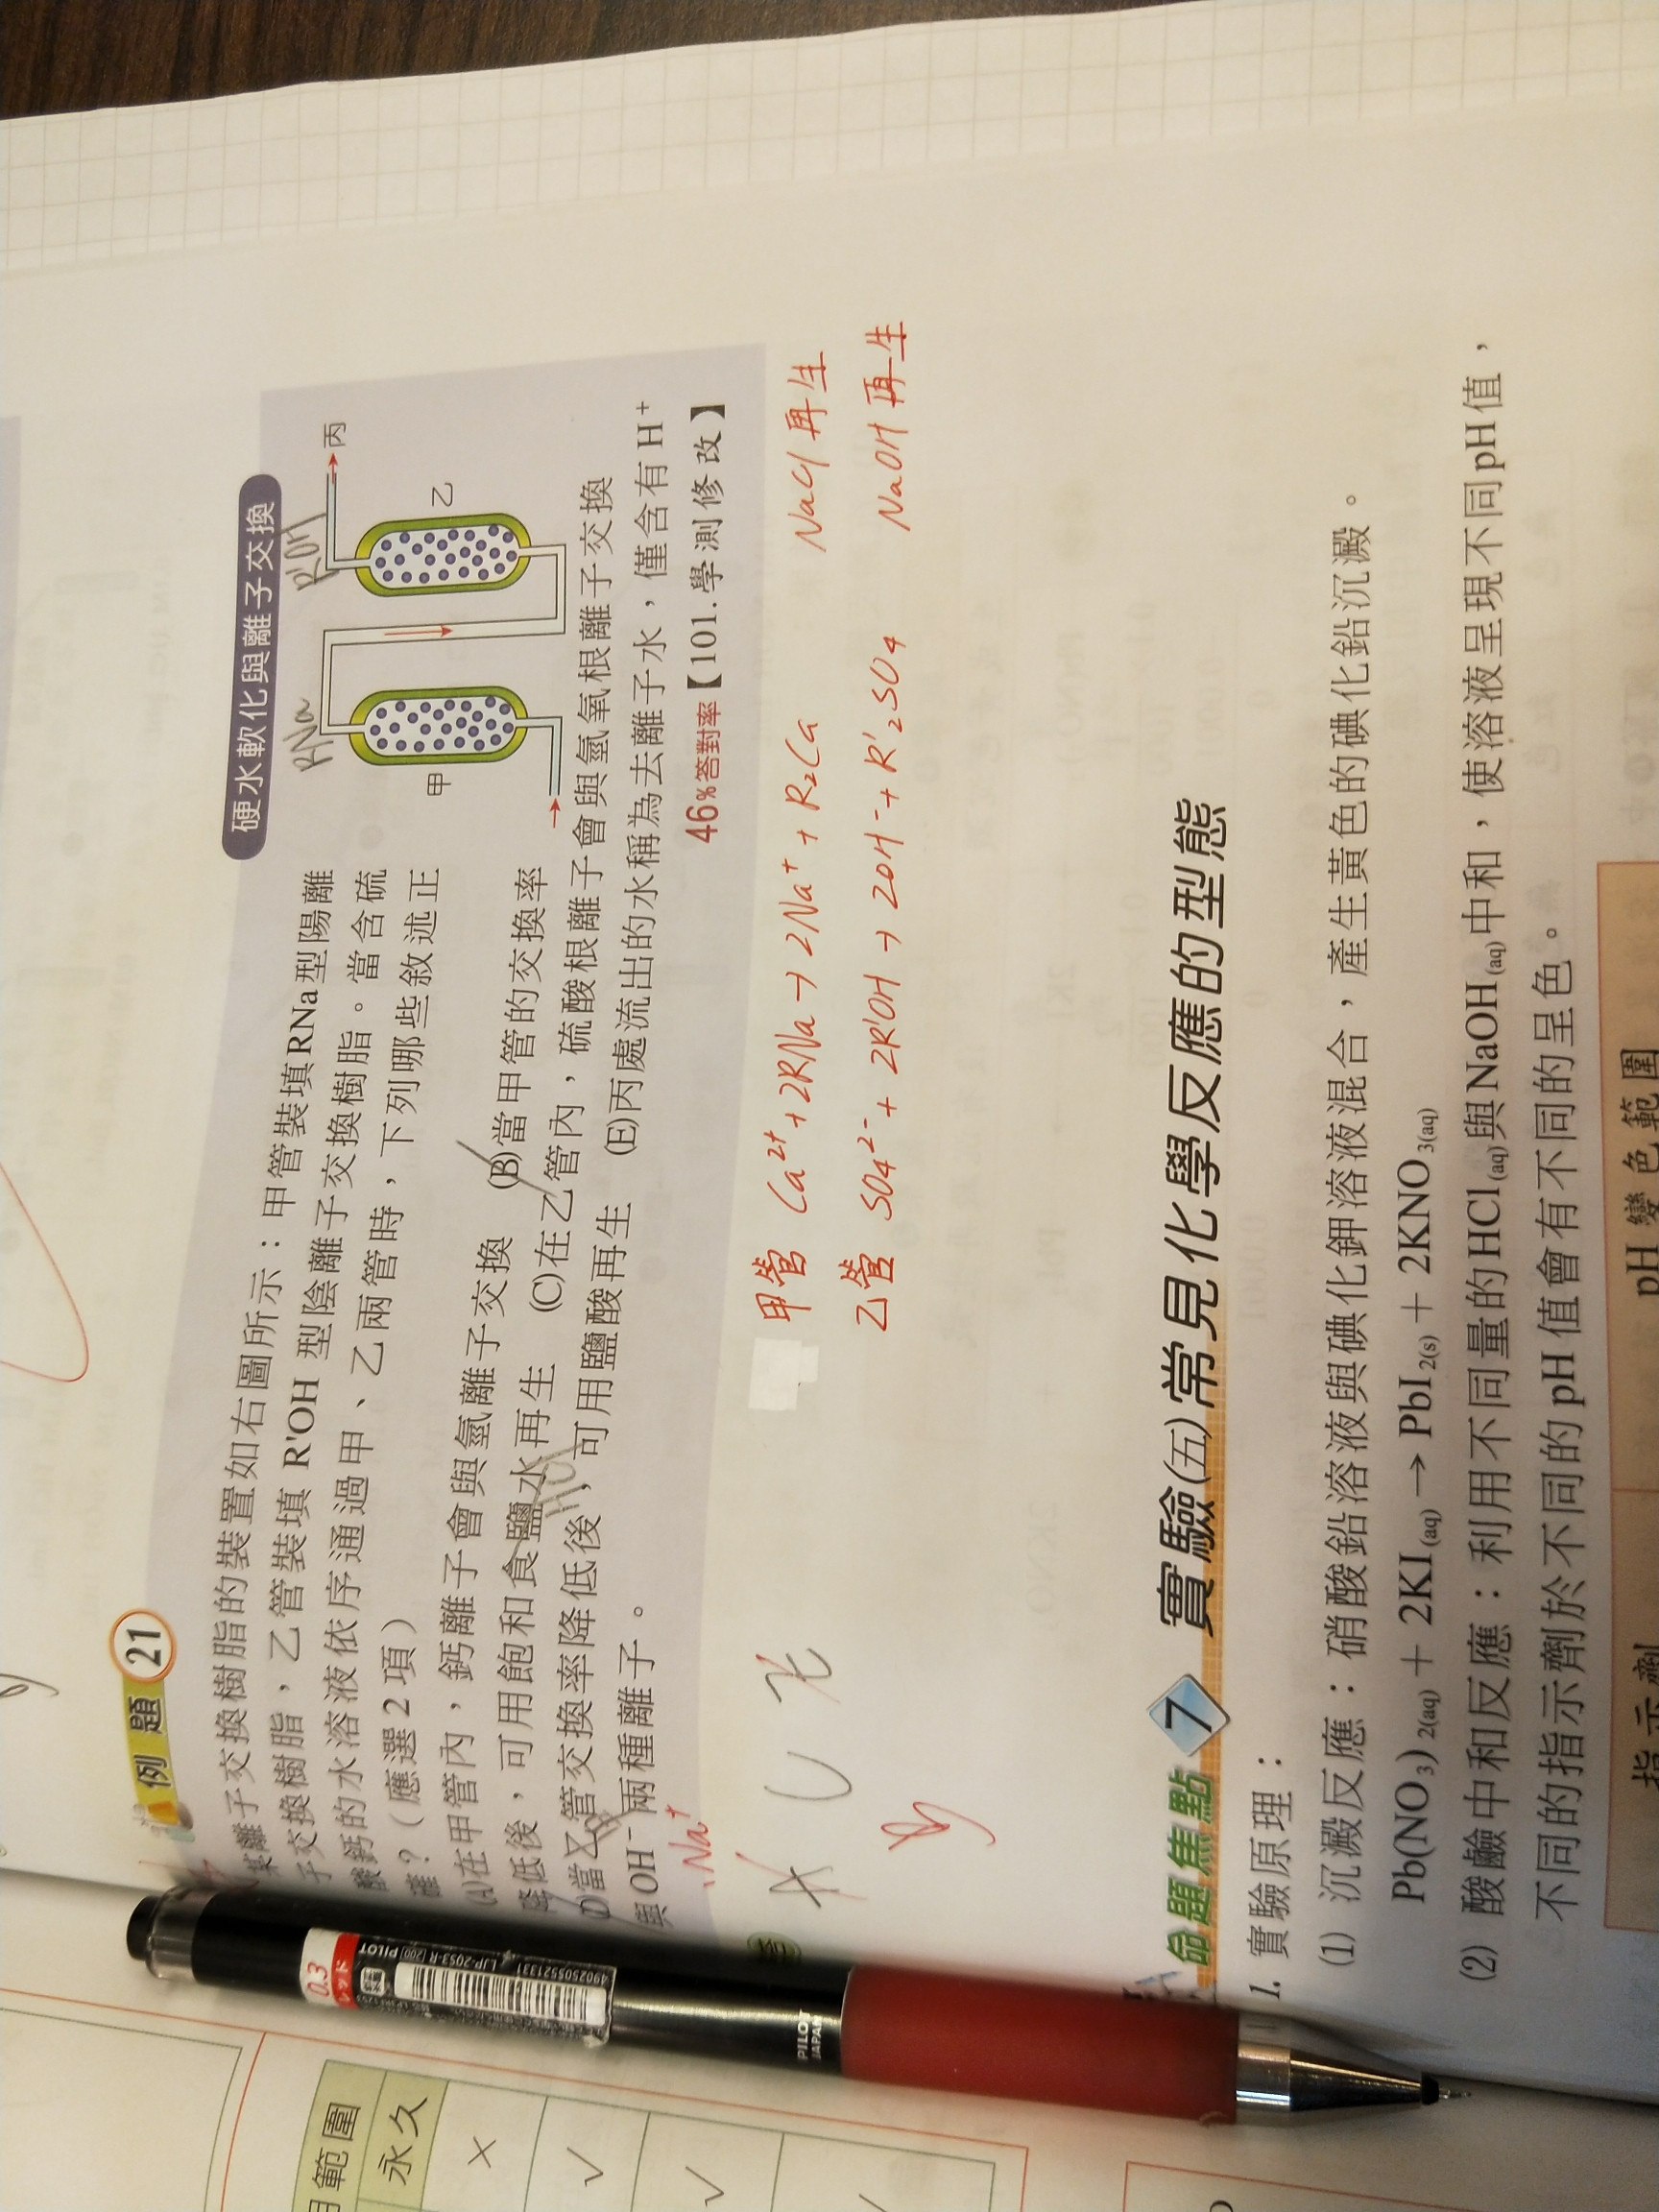 例題 21
硬水軟化與離子交換
某離子交換樹脂的裝置如右圖所示：甲管裝填RNa型陽離
子交換樹脂，乙管裝填 R'OH 型陰離子交換樹脂。當含硫
酸鈣的水溶液依序通過甲、乙兩管時，下列哪些敘述正
確？（應選2項）
(A)在甲管內，鈣離子會與氫離子交換 (B)當甲管的交換率
降低後，可用飽和食鹽水再生 (C)在乙管內，硫酸根離子會與氫氧根離子交換
(D)當乙管交換率降低後，可用鹽酸再生 (E)丙處流出的水稱為去離子水，僅含有H⁺
與OH⁻兩種離子。
46%答對率【101.學測修改】
RNa
R'OH
甲
乙
丙
,Na⁺
甲管 Ca²⁺+2RNa→2Na⁺+R₂Ca NaCl再生
乙管 SO₄²⁻+2R'OH→2OH⁻+R'₂SO₄ NaOH再生
命題焦點 7 實驗(五)常見化學反應的型態
1. 實驗原理：
(1) 沉澱反應：硝酸鉛溶液與碘化鉀溶液混合，產生黃色的碘化鉛沉澱。
Pb(NO₃)₂(aq) + 2KI(aq) → PbI₂(s) + 2KNO₃(aq)
(2) 酸鹼中和反應：利用不同量的HCl(aq)與NaOH(aq)中和，使溶液呈現不同pH值，
不同的指示劑於不同的pH值會有不同的呈色。
指示劑 pH變色範圍
用範圍
永久
×
✓
✓
0.3
レッド
PILOT
LJP-20S3-R [200]
4902505521331
PILOT
JAPAN